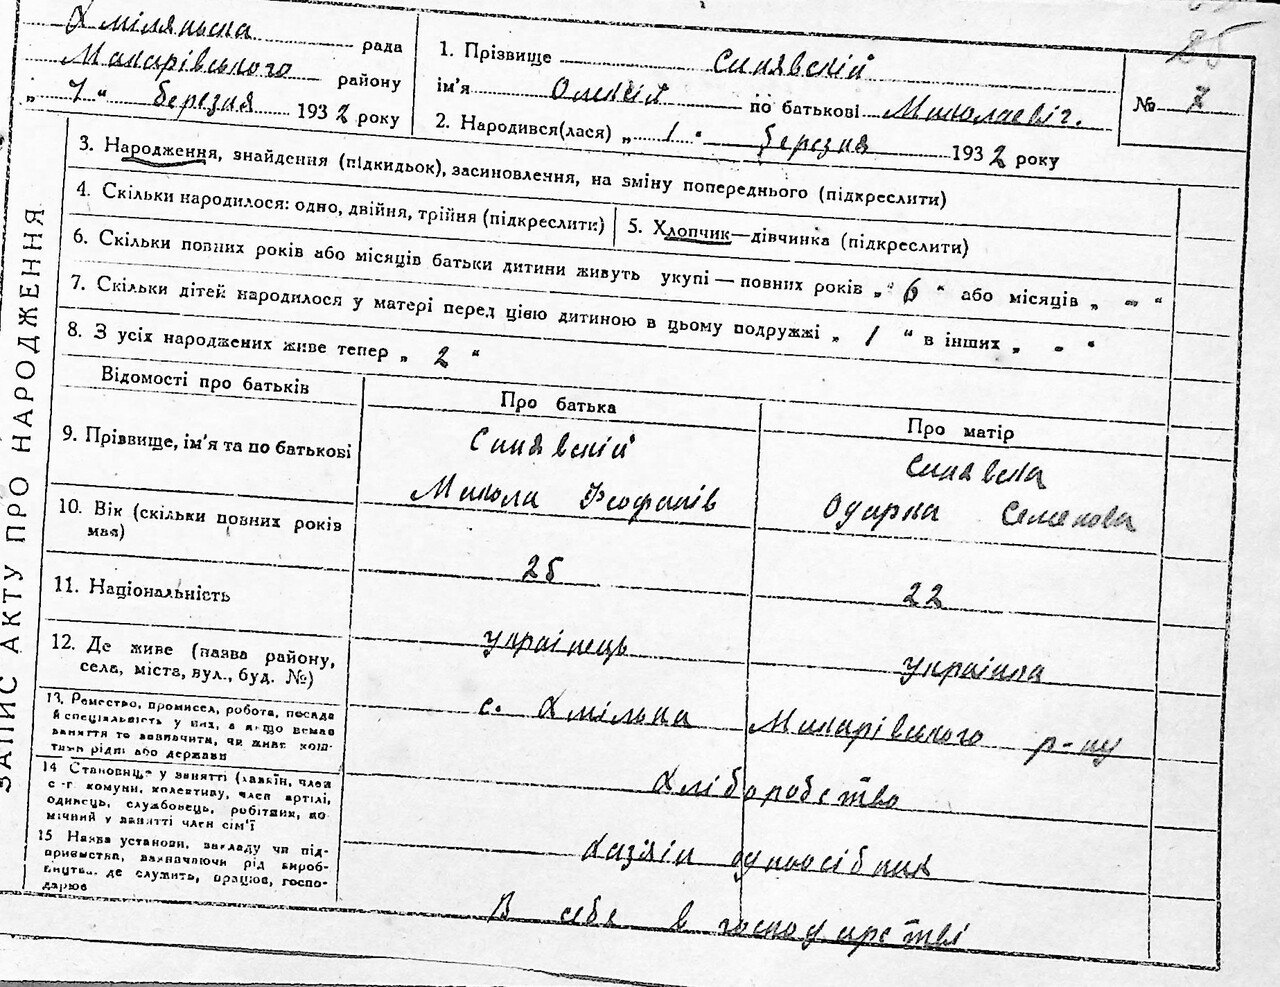 85
Хмілянська рада
Макарівського району
„ 7 “ березня 1932 року
1. Прізвище Синявский
ім'я Олексій по батькові Миколаевіч.
2. Народився(лася) „ 1 “ березня 1932 року
№ 7
ЗАПИС АКТУ ПРО НАРОДЖЕННЯ
3. Народження, знайдення (підкидьок), засиновлення, на зміну попереднього (підкреслити)
4. Скільки народилося: одно, двійня, трійня (підкреслити)
5. Хлопчик—дівчинка (підкреслити)
6. Скільки повних років або місяців батьки дитини живуть укупі — повних років „ 6 “ або місяців „ - “
7. Скільки дітей народилося у матері перед цією дитиною в цьому подружжі „ 1 “ в інших „ - “
8. З усіх народжених живе тепер „ 2 “
Відомості про батьків
Про батька
Про матір
9. Прізвище, ім'я та по батькові
Синявский
Микола Феофанів
Синявска
Одарка Семенова
10. Вік (скільки повних років
має)
25
22
11. Національність
українець
українка
12. Де живе (назва району,
села, міста, вул., буд. №)
с. Хмільна Макарівського р-ну
13. Ремество, промисел, робота, посада
й спеціальність у них, а якщо немає
заняття то зазначити, чи живе кош-
тами рідні або держави
Хліборобство
14 Становище у занятті (хазяїн, член
с.-г. комуни, колективу, член артілі,
одинець, службовець, робітник, по
мічний у занятті член сім'ї
Хазяін одноосібник
15 Назва установи, закладу чи під-
приємства, зазначаючи рід вироб-
ництва. де служить, працює, госпо-
дарює
В себе в господарстві